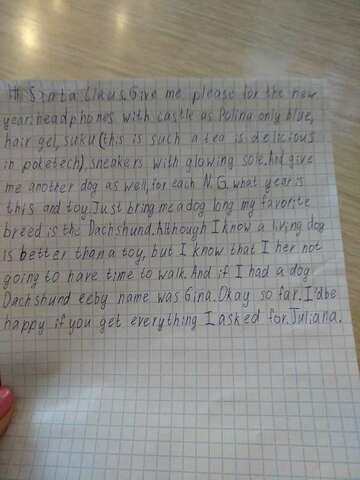 Hi Snata Claus. Give me please for the new
year: headphones with castle as Polina only blue,
hair gel, suku (this is such a tea is delicious
in poketech), sneakers with glowing sole. And give
me another dog as well, for each N.G. what year is
this and toy. Just bring me a dog long my favorite
breed is the Dachshund. Although I know a living dog
is better than a toy, but I know that I her not
going to have time to walk. And if I had a dog
Dachshund eeby name was Gina. Okay so far. I'dbe
happy if you get everything I asked for. Juliana.